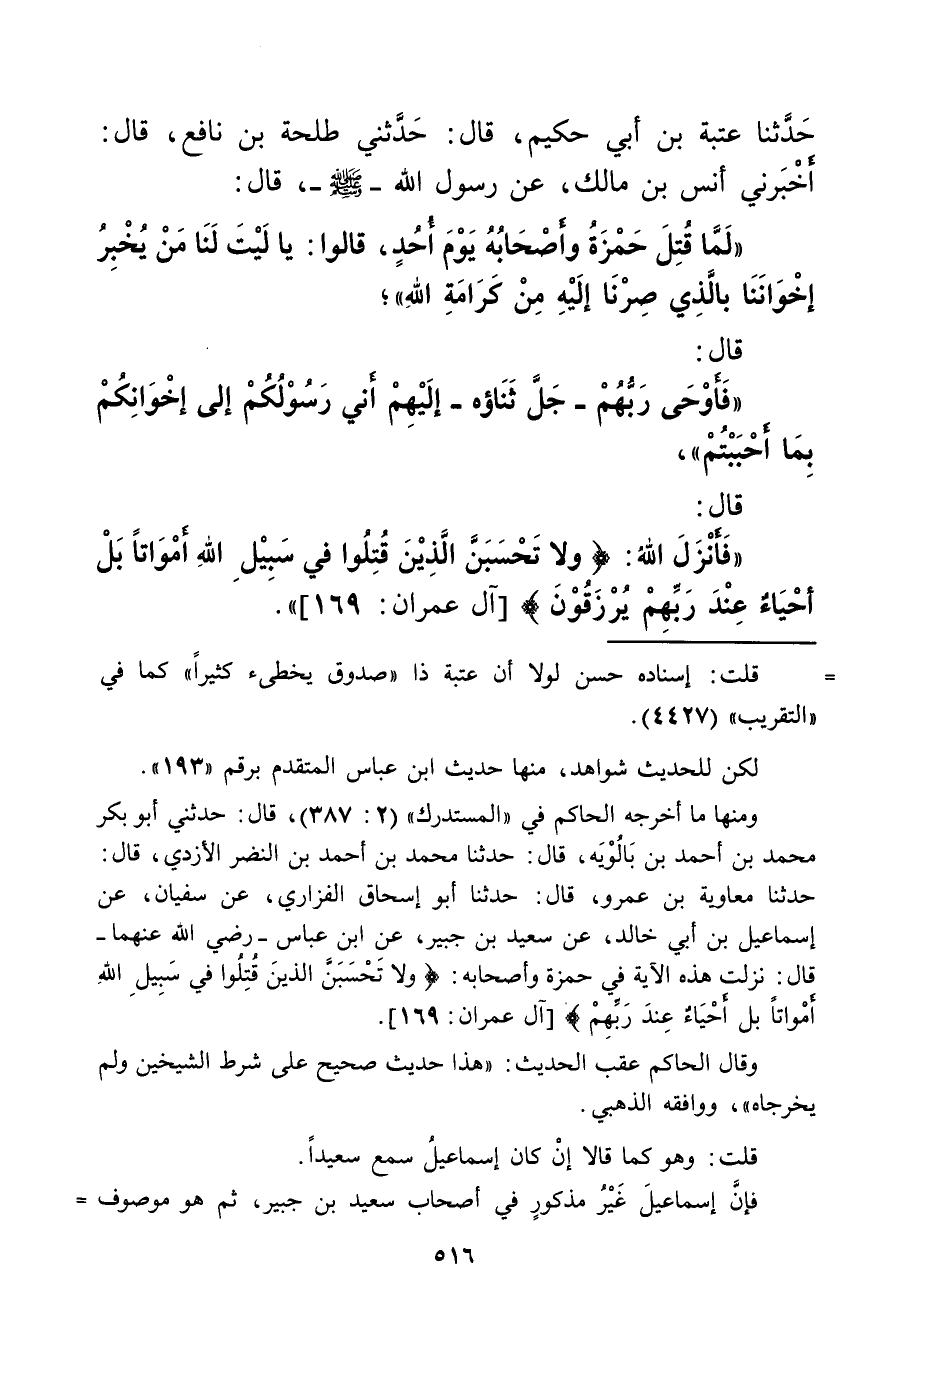 حَدَّثنا عتبة بن أبي حكيم، قال: حَدَّثني طلحة بن نافع، قال:
أَخْبَرني أنس بن مالك، عن رسول الله ـ ﷺ ـ، قال:
«لَمَّا قُتِلَ حَمْزَةُ وأَصْحَابُهُ يَوْمَ أُحُدٍ، قالوا: يا لَيْتَ لَنَا مَنْ يُخْبِرُ
إخْوَانَنَا بالَّذِي صِرْنَا إلَيْهِ مِنْ كَرَامَةِ اللهِ»؛
قال:
«فَأَوْحَى رَبُّهُمْ ـ جَلَّ ثَنَاؤه ـ إلَيْهِمْ أَني رَسُوْلُكُمْ إلى إخْوَانِكُمْ
بِمَا أَحْبَبْتُمْ»،
قال:
«فَأَنْزَلَ اللهُ: ﴿ ولا تَحْسَبَنَّ الَّذِيْنَ قُتِلُوا في سَبِيْلِ اللهِ أَمْوَاتاً بَلْ
أَحْيَاءٌ عِنْدَ رَبِّهِمْ يُرْزَقُوْنَ ﴾ [آل عمران: ١٦٩]».
= قلت: إسناده حسن لولا أن عتبة ذا «صدوق يخطىء كثيراً» كما في
«التقريب» (٤٤٢٧).
لكن للحديث شواهد، منها حديث ابن عباس المتقدم برقم «١٩٣».
ومنها ما أخرجه الحاكم في «المستدرك» (٢: ٣٨٧)، قال: حدثني أبو بكر
محمد بن أحمد بن بَالُوْيَه، قال: حدثنا محمد بن أحمد بن النضر الأزدي، قال:
حدثنا معاوية بن عمرو، قال: حدثنا أبو إسحاق الفزاري، عن سفيان، عن
إسماعيل بن أبي خالد، عن سعيد بن جبير، عن ابن عباس ـ رضي الله عنهما ـ
قال: نزلت هذه الآية في حمزة وأصحابه: ﴿ ولا تَحْسَبَنَّ الذينَ قُتِلُوا في سَبِيلِ اللهِ
أَمْواتاً بل أَحْيَاءٌ عِندَ رَبِّهِمْ ﴾ [آل عمران: ١٦٩].
وقال الحاكم عقب الحديث: «هذا حديث صحيح على شرط الشيخين ولم
يخرجاه»، ووافقه الذهبي.
قلت: وهو كما قالا إنْ كان إسماعيلُ سمع سعيداً.
فإنَّ إسماعيلَ غَيْرُ مذكورٍ في أصحاب سعيد بن جبير، ثم هو موصوف =
٥١٦